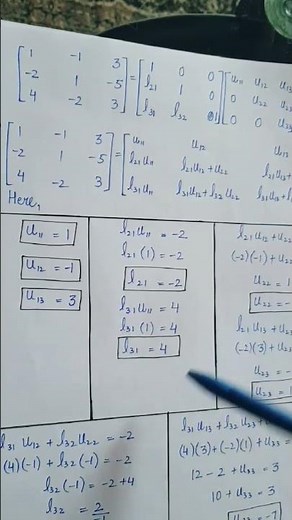 [1 -1 3] = [1 0 0] [u₁₁ u₁₂ u₁₃
[-2 1 -5] = [l₂₁ 1 0] [0 u₂₂ u₂₃
[4 -2 3] = [l₃₁ l₃₂ 1] [0 0 u₃₃
[1 -1 3] = [u₁₁ u₁₂
[-2 1 -5] = [l₂₁u₁₁ l₂₁u₁₂+u₂₂ l₂₁u
[4 -2 3] = [l₃₁u₁₁ l₃₁u₁₂+l₃₂u₂₂ l₃₁u₁₃+l
Here,
u₁₁ = 1
u₁₂ = -1
u₁₃ = 3
l₂₁u₁₁ = -2
l₂₁(1) = -2
l₂₁ = -2
l₃₁u₁₁ = 4
l₃₁(1) = 4
l₃₁ = 4
l₂₁u₁₂+u₂₂
(-2)(-1)+u₂₂
u₂₂ = 1
u₂₂ = -
l₂₁u₁₃+u₂₃
(-2)(3)+u₂₃
u₂₃ = -
u₂₃ = 1
l₃₁ u₁₂ + l₃₂u₂₂ = -2
(4)(-1) + l₃₂(-1) = -2
l₃₂(-1) = -2+4
l₃₂ = 2/-1
l₃₁ u₁₃ + l₃₂ u₂₃ + u₃₃
(4)(3)+(-2)(1)+u₃₃ =
12 - 2 + u₃₃ = 3
10 + u₃₃ = 3
u₃₃ = -7